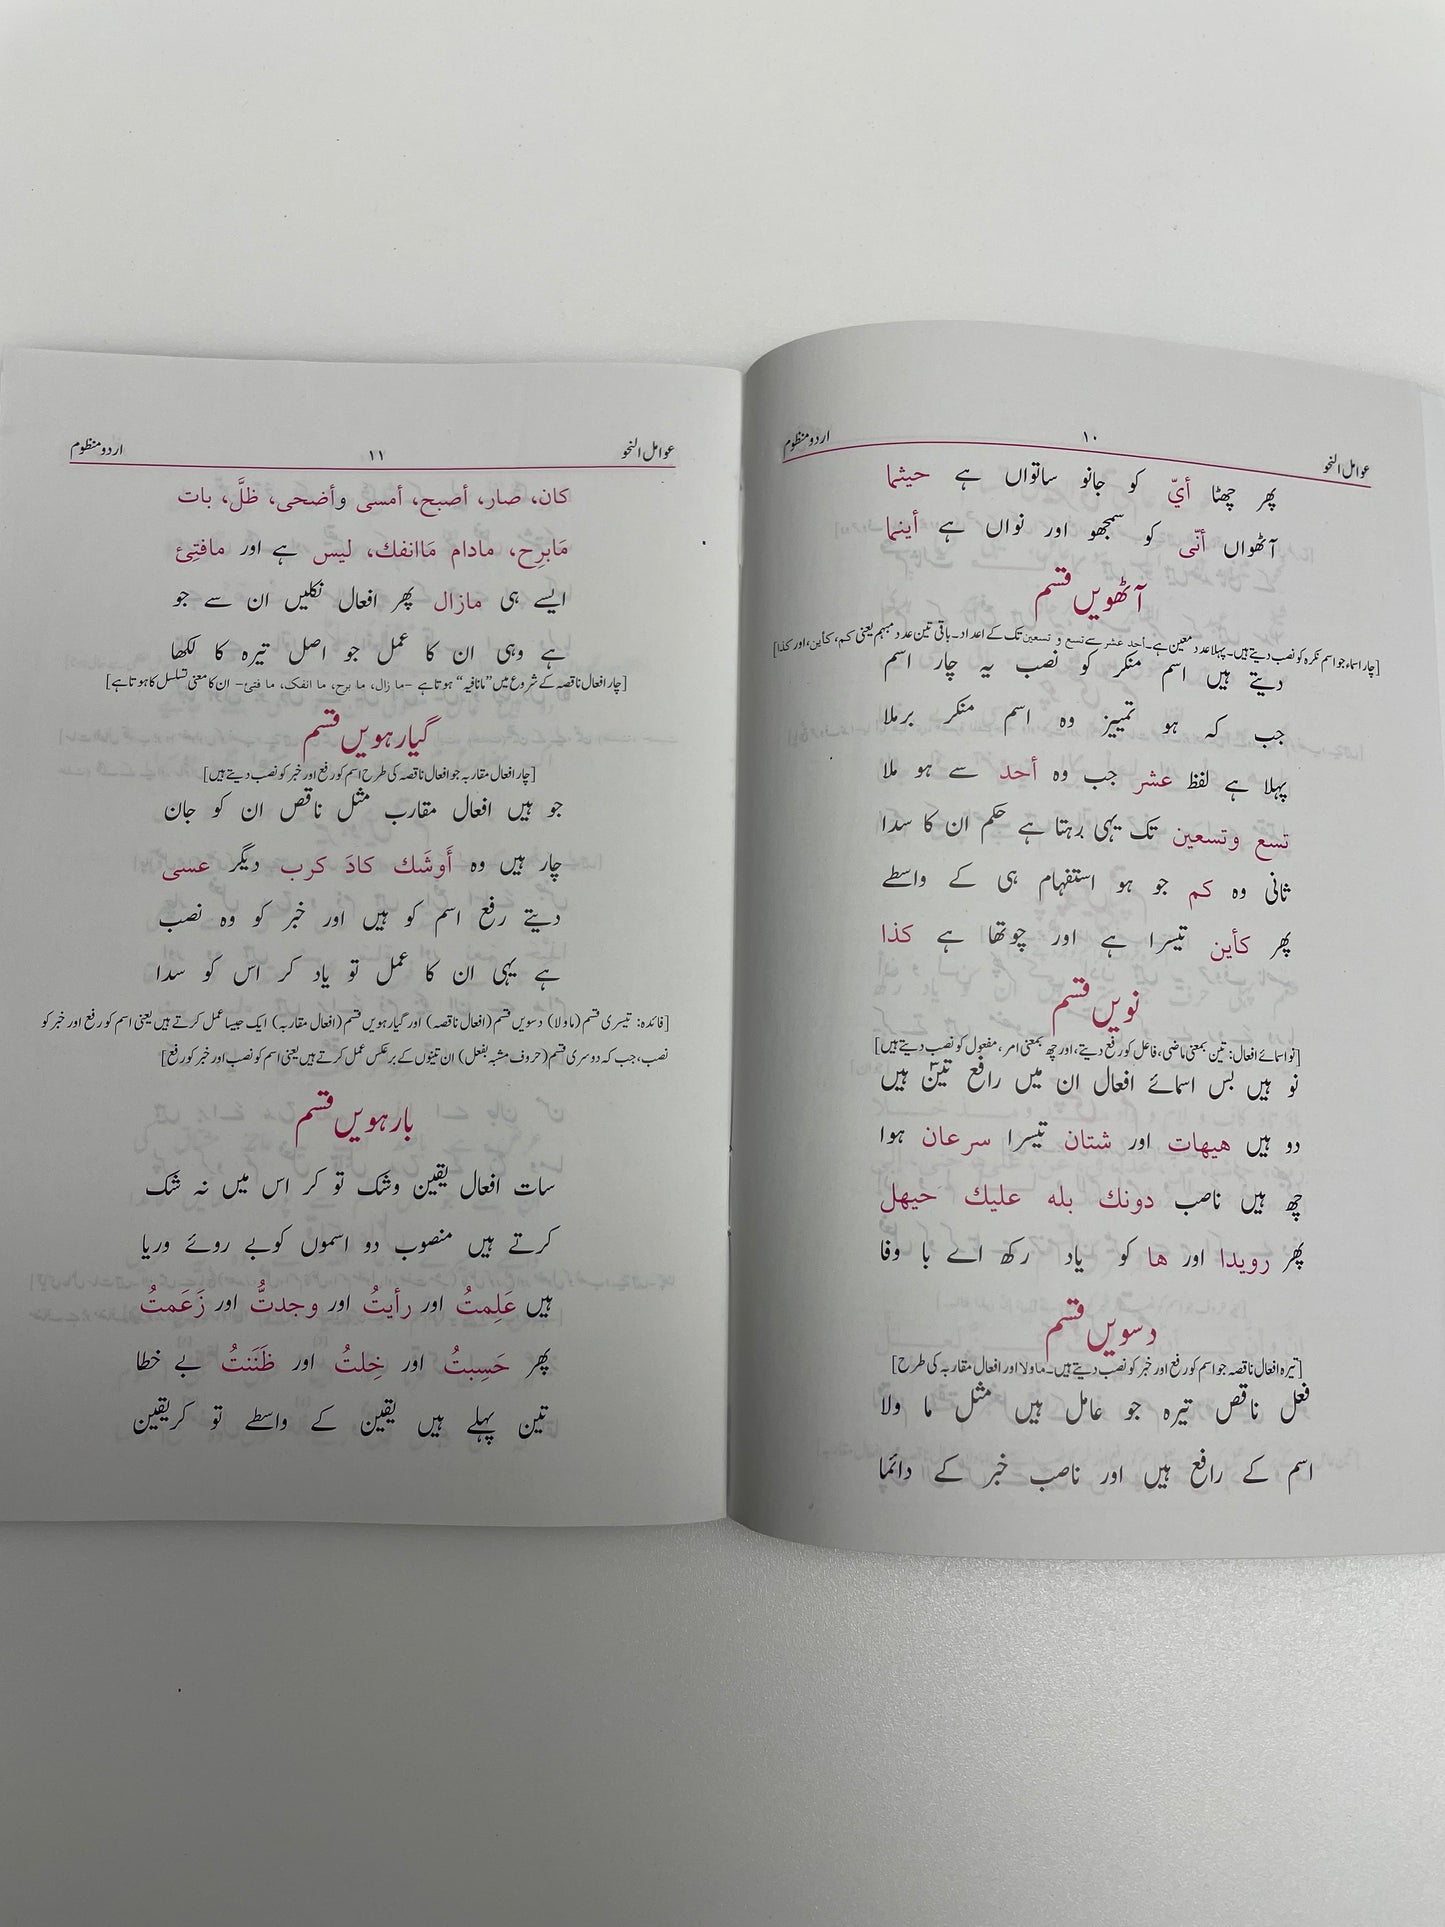 عوامل النحو ۱۰ اردو منظوم
پھر چھٹا أيّ کو جانو ساتواں ہے حیثما
آٹھواں أنّی کو سمجھو اور نواں ہے أینما
آٹھویں قسم
[چار اسماء جو اسم نکرہ کو نصب دیتے ہیں۔ پہلا عدد معین ہے۔ أحد عشر سے تسع و تسعین تک کے اعداد۔ باقی تین عدد مبہم یعنی کم، کأین، اور کذا]
دیتے ہیں اسم منکر کو نصب یہ چار اسم
جب کہ ہو تمییز وہ اسم منکر برملا
پہلا ہے لفظ عشر جب وہ أحد سے ہو ملا
تسع وتسعین تک یہی رہتا ہے حکم ان کا سدا
ثانی وہ کم جو ہو استفہام ہی کے واسطے
پھر کأین تیسرا ہے اور چوتھا ہے کذا
نویں قسم
[نو اسمائے افعال: تین بمعنی ماضی، فاعل کو رفع دیتے، اور چھ بمعنی امر، مفعول کو نصب دیتے ہیں]
نو ہیں بس اسمائے افعال ان میں رافع تین ہیں
دو ہیں هیهات اور شتان تیسرا سرعان ہوا
چھ ہیں ناصب دونك بله علیك حیهل
پھر رویدا اور ها کو یاد رکھ اے با وفا
دسویں قسم
[تیرہ افعال ناقصہ جو اسم کو رفع اور خبر کو نصب دیتے ہیں۔ ماولا اور افعال مقاربہ کی طرح]
فعل ناقص تیرہ جو عامل ہیں مثل ما ولا
اسم کے رافع ہیں اور ناصب خبر کے دائما
عوامل النحو ۱۱ اردو منظوم
كان، صار، أصبح، أمسى وأضحى، ظلَّ، بات
مَابرِح، مادام مَاانفك، لیس ہے اور مافتِئ
ایسے ہی مازال پھر افعال نکلیں ان سے جو
ہے وہی ان کا عمل جو اصل تیرہ کا لکھا
[چار افعال ناقصہ کے شروع میں ”ما نافیہ“ ہوتا ہے -ما زال، ما برح، ما انفک، ما فتئ- ان کا معنی تسلسل کا ہوتا ہے]
گیارہویں قسم
[چار افعال مقاربہ جو افعال ناقصہ کی طرح اسم کو رفع اور خبر کو نصب دیتے ہیں]
جو ہیں افعال مقارب مثل ناقص ان کو جان
چار ہیں وہ أَوشَك كادَ كرب دیگر عسی
دیتے رفع اسم کو ہیں اور خبر کو وہ نصب
ہے یہی ان کا عمل تو یاد کر اس کو سدا
[فائدہ: تیسری قسم (ماولا) دسویں قسم (افعال ناقصہ) اور گیارہویں قسم (افعال مقاربہ) ایک جیسا عمل کرتے ہیں یعنی اسم کو رفع اور خبر کو
نصب، جب کہ دوسری قسم (حروف مشبہ بفعل) ان تینوں کے برعکس عمل کرتے ہیں یعنی اسم کو نصب اور خبر کو رفع]
بارہویں قسم
سات افعال یقین وشک تو کر اس میں نہ شک
کرتے ہیں منصوب دو اسموں کو بے روئے وریا
ہیں عَلِمتُ اور رأیتُ اور وجدتُّ اور زَعَمتُ
پھر حَسِبتُ اور خِلتُ اور ظَنَنتُ بے خطا
تین پہلے ہیں یقین کے واسطے تو کر یقین